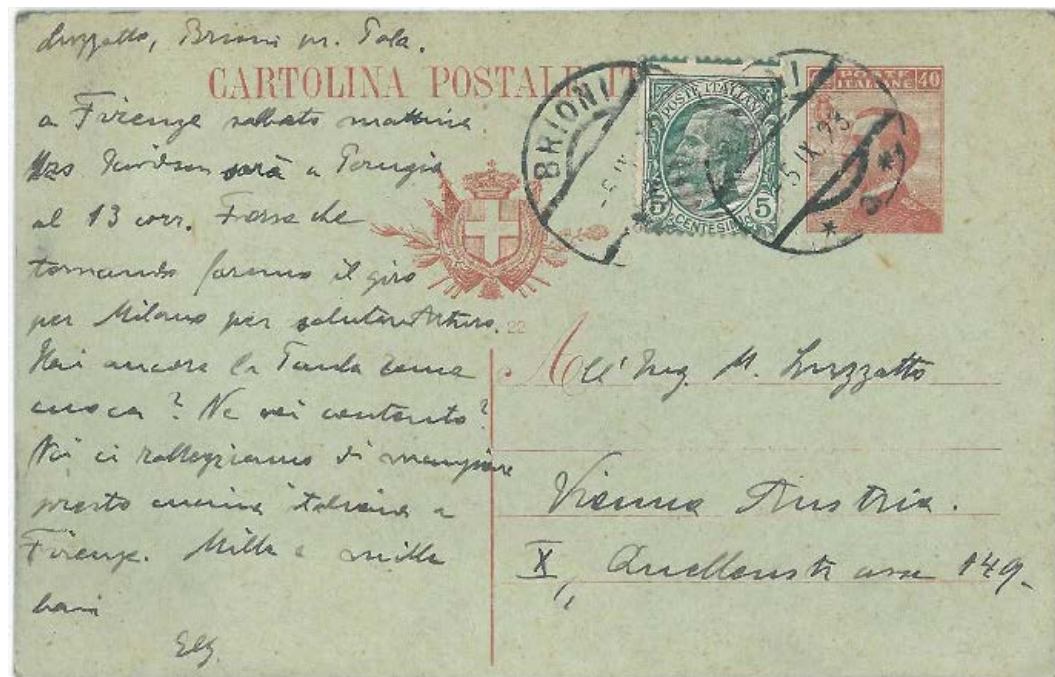 Luzzatto, Brioni pr. Pola.
CARTOLINA POSTALE IT
POSTE ITALIANE 40
POSTE ITALIANE
5 CENTESIMI 5
BRIONI
5 IX. 23
a Firenze sabato mattina
Mrs Davidson sarà a Perugia
al 13 corr. Forse che
tornando faremo il giro
per Milano per salutare Arturo.
Hai ancora la come
cuoca? Ne sei contento?
Noi ci rallegriamo di mangiare
presto cucina italiana a
Firenze. Mille e mille
baci
22
All' Ing. M. Luzzatto
Vienna Austria.
X, Quellenstrasse 149.